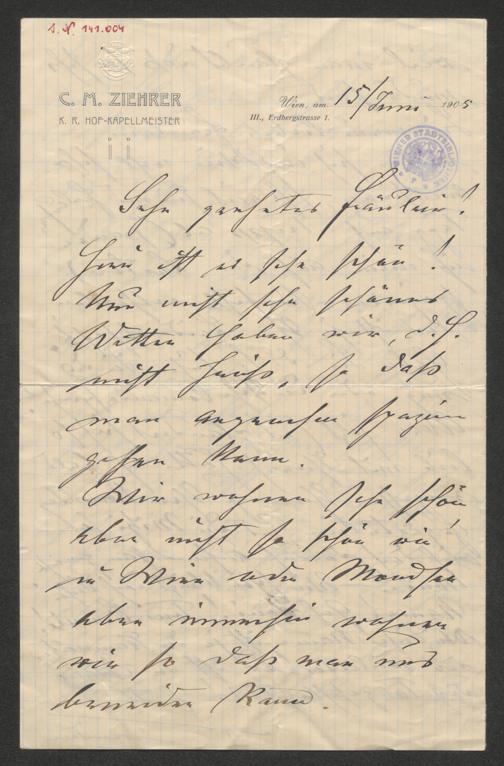 I. N. 141.004
C. M. ZIEHRER
K. K. HOF-KAPELLMEISTER
Wien, am 15/Juni 1905
III., Erdbergstrasse 1.
WIENER STADTBIBLIOTHEK
Sehr geehrtes Fräulein!
Hier ist es sehr schön!
Nur nicht sehr schönes
Wetter haben wir, d. h.
nicht heiß, so daß
man angenehm spazieren
gehen kann.
Wir wohnen sehr schön,
aber nicht so schön wie
in Wien oder Mondsee
aber immerhin wohnen
wir so daß man uns
beneiden kann.